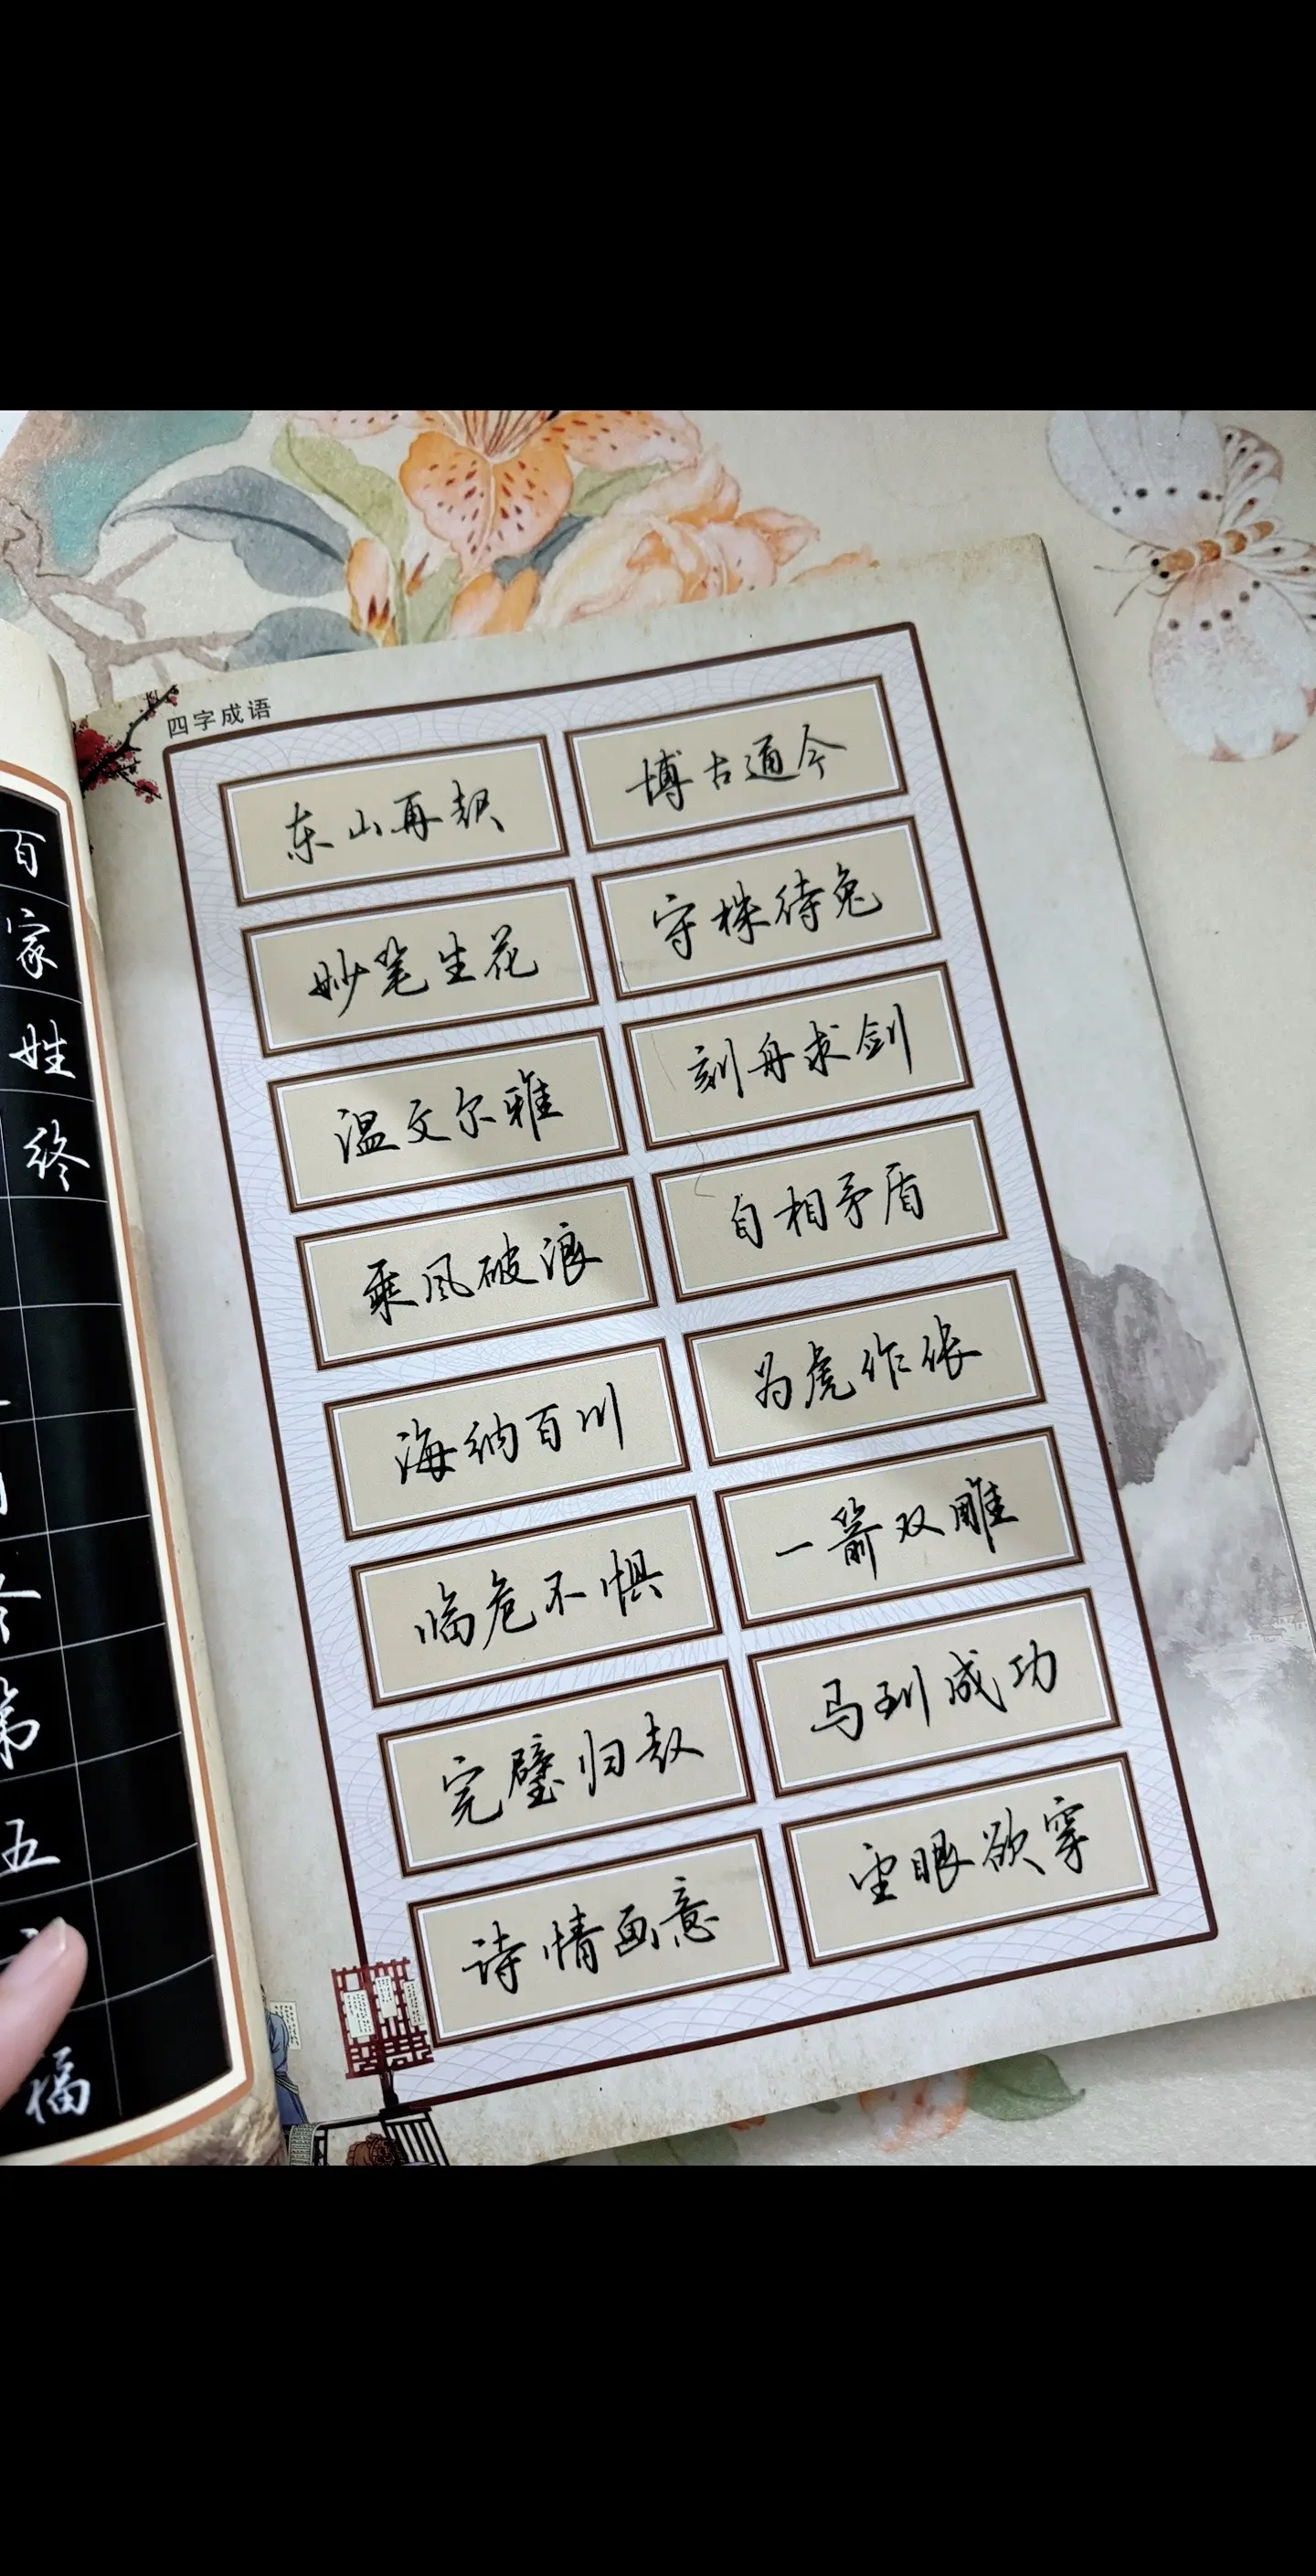 四字成语
东山再起
博古通今
妙笔生花
守株待兔
温文尔雅
刻舟求剑
乘风破浪
自相矛盾
海纳百川
为虎作伥
临危不惧
一箭双雕
完璧归赵
马到成功
诗情画意
望眼欲穿
百家姓终
第五
福